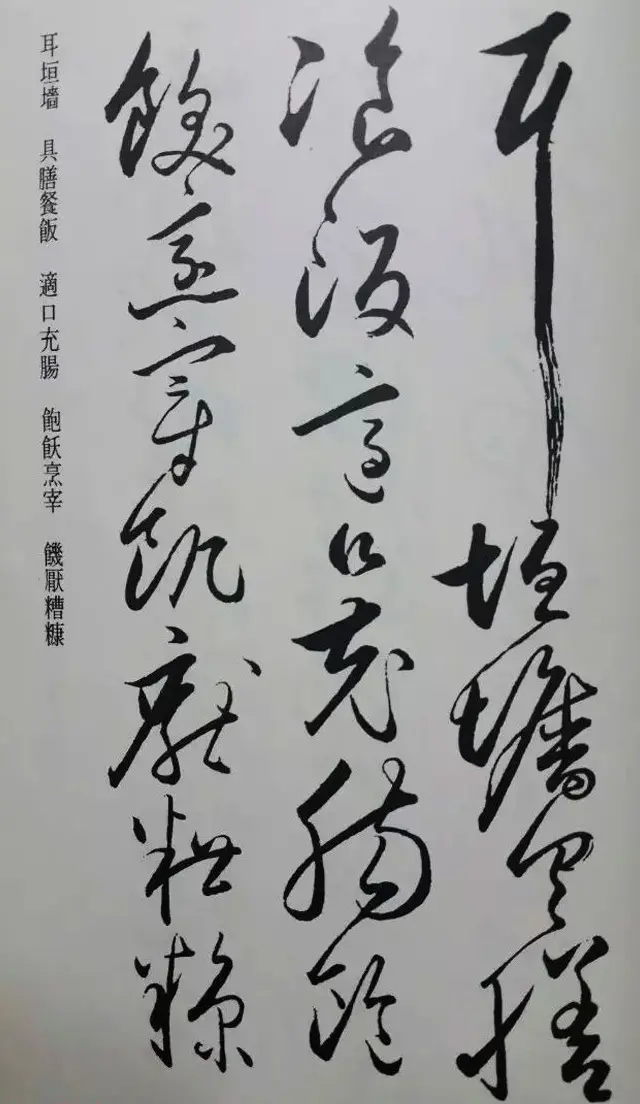 耳垣墙具膳
飡飯適口充腸飽
飫烹宰飢厭糟糠
耳垣墙 具膳餐飯 適口充腸 飽飫烹宰 饑厭糟糠